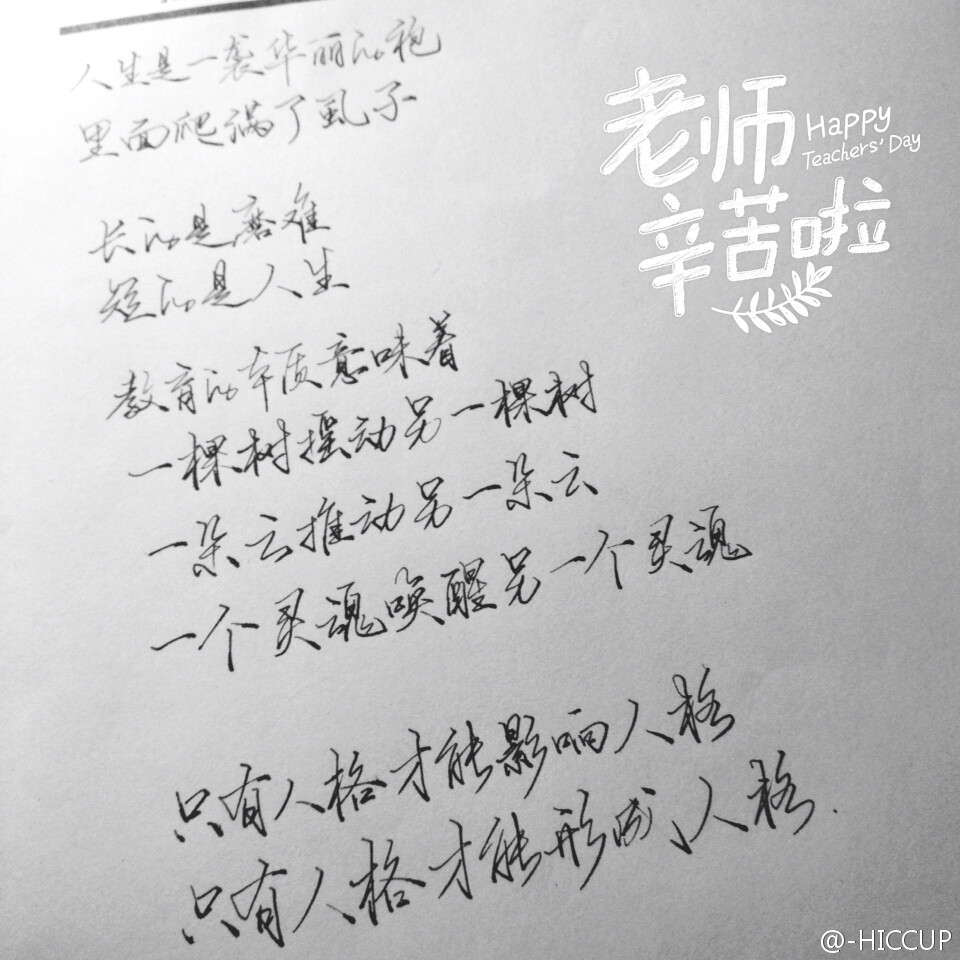 人生是一袭华丽的袍
里面爬满了虱子
长的是磨难
短的是人生
教育的本质意味着
一棵树摇动另一棵树
一朵云推动另一朵云
一个灵魂唤醒另一个灵魂
只有人格才能影响人格
只有人格才能形成人格.
老师
Happy
Teachers' Day
辛苦啦
@-HICCUP